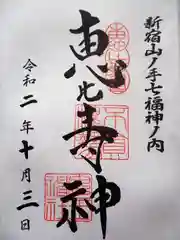 新宿山ノ手七福神ノ内
恵比寿神
令和二年十月三日